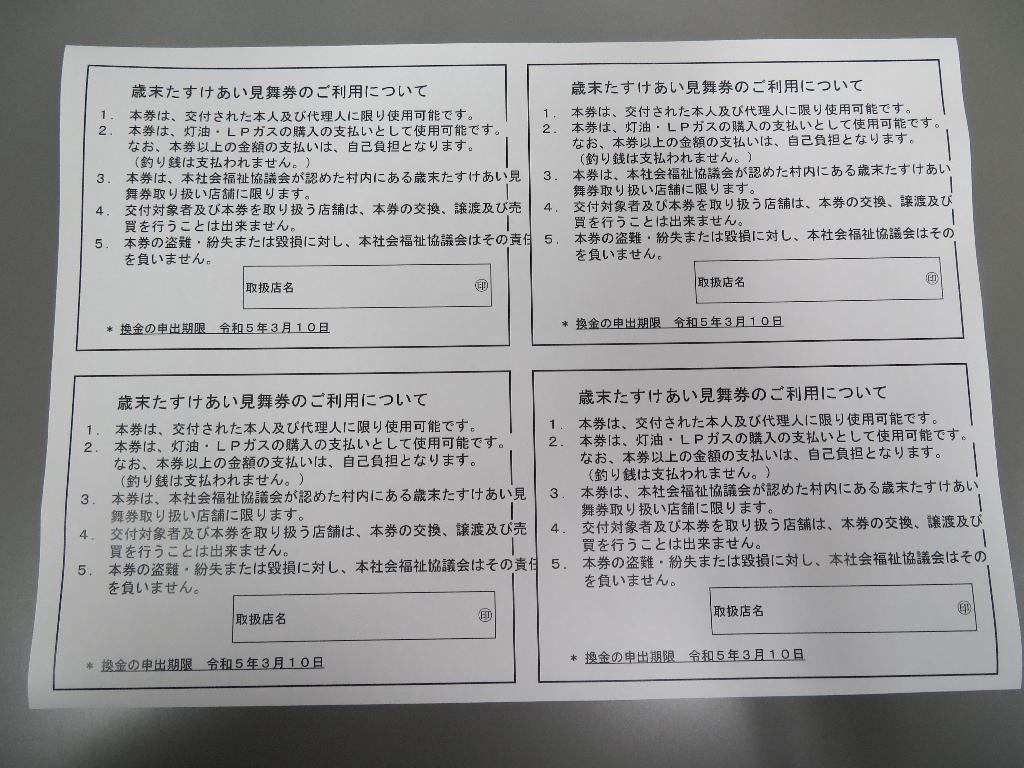 歳末たすけあい見舞券のご利用について
１． 本券は、交付された本人及び代理人に限り使用可能です。
２． 本券は、灯油・ＬＰガスの購入の支払いとして使用可能です。
なお、本券以上の金額の支払いは、自己負担となります。
（釣り銭は支払われません。）
３． 本券は、本社会福祉協議会が認めた村内にある歳末たすけあい見
舞券取り扱い店舗に限ります。
４． 交付対象者及び本券を取り扱う店舗は、本券の交換、譲渡及び売
買を行うことは出来ません。
５． 本券の盗難・紛失または毀損に対し、本社会福祉協議会はその責任
を負いません。
取扱店名 ㊞
* 換金の申出期限 令和５年３月１０日
歳末たすけあい見舞券のご利用について
１． 本券は、交付された本人及び代理人に限り使用可能です。
２． 本券は、灯油・ＬＰガスの購入の支払いとして使用可能です。
なお、本券以上の金額の支払いは、自己負担となります。
（釣り銭は支払われません。）
３． 本券は、本社会福祉協議会が認めた村内にある歳末たすけあい
舞券取り扱い店舗に限ります。
４． 交付対象者及び本券を取り扱う店舗は、本券の交換、譲渡及び
買を行うことは出来ません。
５． 本券の盗難・紛失または毀損に対し、本社会福祉協議会はその
を負いません。
取扱店名 ㊞
* 換金の申出期限 令和５年３月１０日
歳末たすけあい見舞券のご利用について
１． 本券は、交付された本人及び代理人に限り使用可能です。
２． 本券は、灯油・ＬＰガスの購入の支払いとして使用可能です。
なお、本券以上の金額の支払いは、自己負担となります。
（釣り銭は支払われません。）
３． 本券は、本社会福祉協議会が認めた村内にある歳末たすけあい見
舞券取り扱い店舗に限ります。
４． 交付対象者及び本券を取り扱う店舗は、本券の交換、譲渡及び売
買を行うことは出来ません。
５． 本券の盗難・紛失または毀損に対し、本社会福祉協議会はその責任
を負いません。
取扱店名 ㊞
* 換金の申出期限 令和５年３月１０日
歳末たすけあい見舞券のご利用について
１． 本券は、交付された本人及び代理人に限り使用可能です。
２． 本券は、灯油・ＬＰガスの購入の支払いとして使用可能です。
なお、本券以上の金額の支払いは、自己負担となります。
（釣り銭は支払われません。）
３． 本券は、本社会福祉協議会が認めた村内にある歳末たすけあい
舞券取り扱い店舗に限ります。
４． 交付対象者及び本券を取り扱う店舗は、本券の交換、譲渡及び
買を行うことは出来ません。
５． 本券の盗難・紛失または毀損に対し、本社会福祉協議会はその
を負いません。
取扱店名 ㊞
* 換金の申出期限 令和５年３月１０日